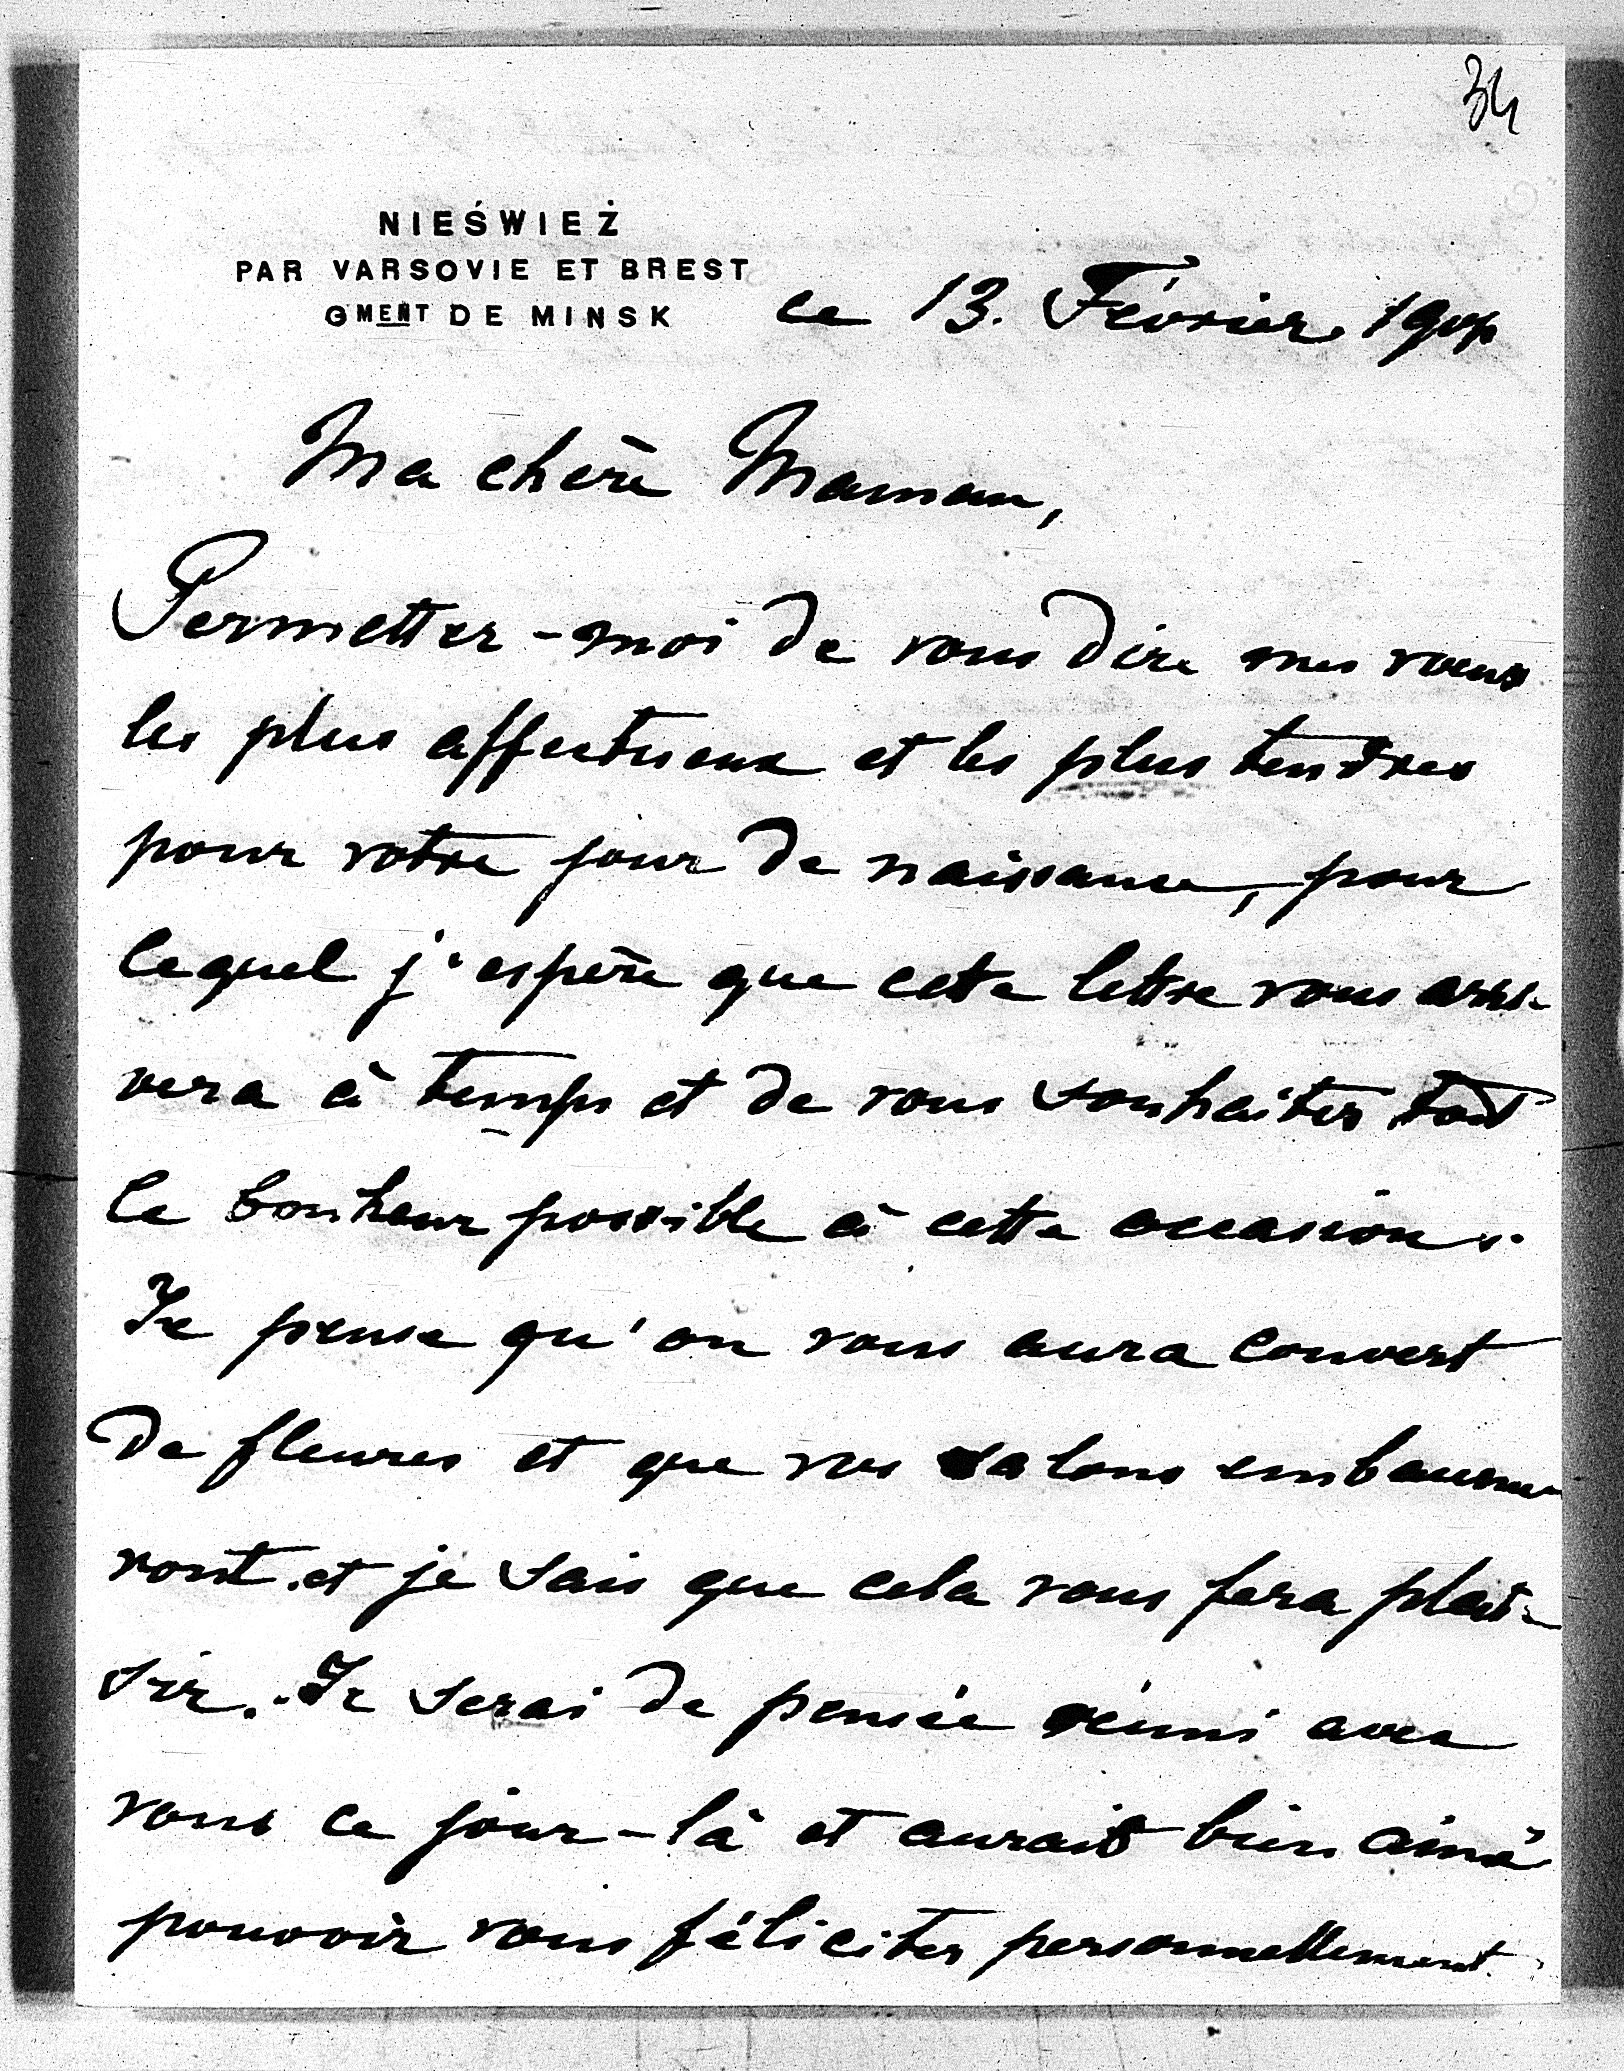 34
NIEŚWIEŻ
PAR VARSOVIE ET BREST
GMENT DE MINSK
ce 13. Février
Ma chère Maman,
Permettez-moi de vous dire mes voeux
les plus affectueux et les plus tendres
pour votre jour de naissance, pour
lequel j'espère que cette lettre vous arri-
vera à temps et de vous souhaiter tout
le bonheur possible à cette occasion.
Je pense qu'on vous aura couvert
de fleures et que vos salons embaume-
ront et je sais que cela vous fera plai-
sir. Je serai de pensée réuni avec
vous ce jour-là et aurais bien aimé
pouvoir vous féliciter personnellement.